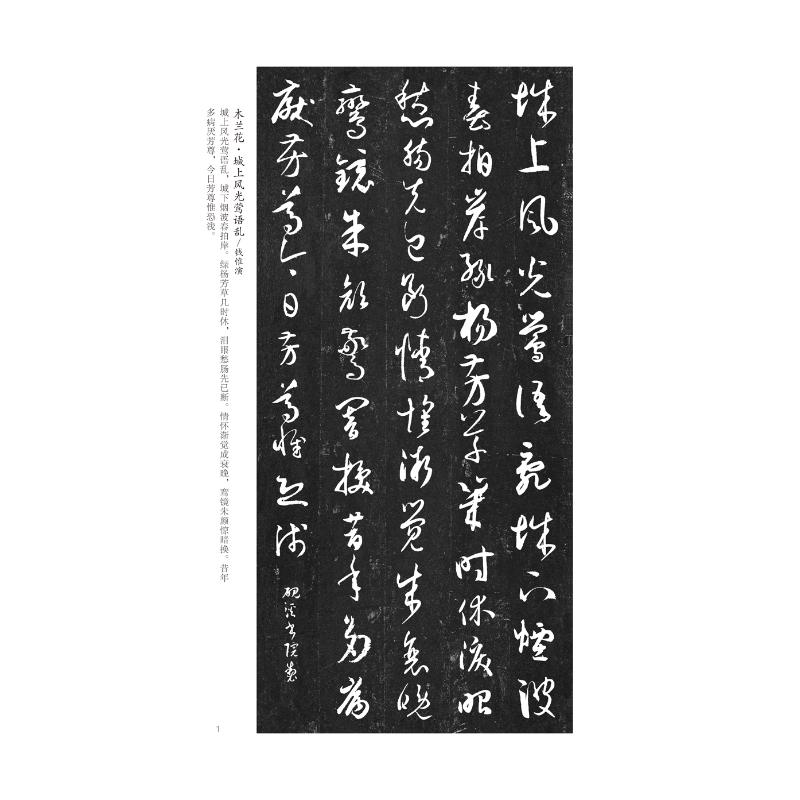 城上風光鶯語亂城下煙波
春拍岸綠楊芳草幾時休淚眼
愁腸先已斷情懷漸覺成衰晚
鸞鏡朱顏驚暗換昔年多病
厭芳尊今日芳尊惟恐淺
硯溪書院製
木兰花·城上风光莺语乱/钱惟演
城上风光莺语乱，城下烟波春拍岸。绿杨芳草几时休，泪眼愁肠先已断。情怀渐觉成衰晚，鸾镜朱颜惊暗换。昔年
多病厌芳尊，今日芳尊惟恐浅。
1